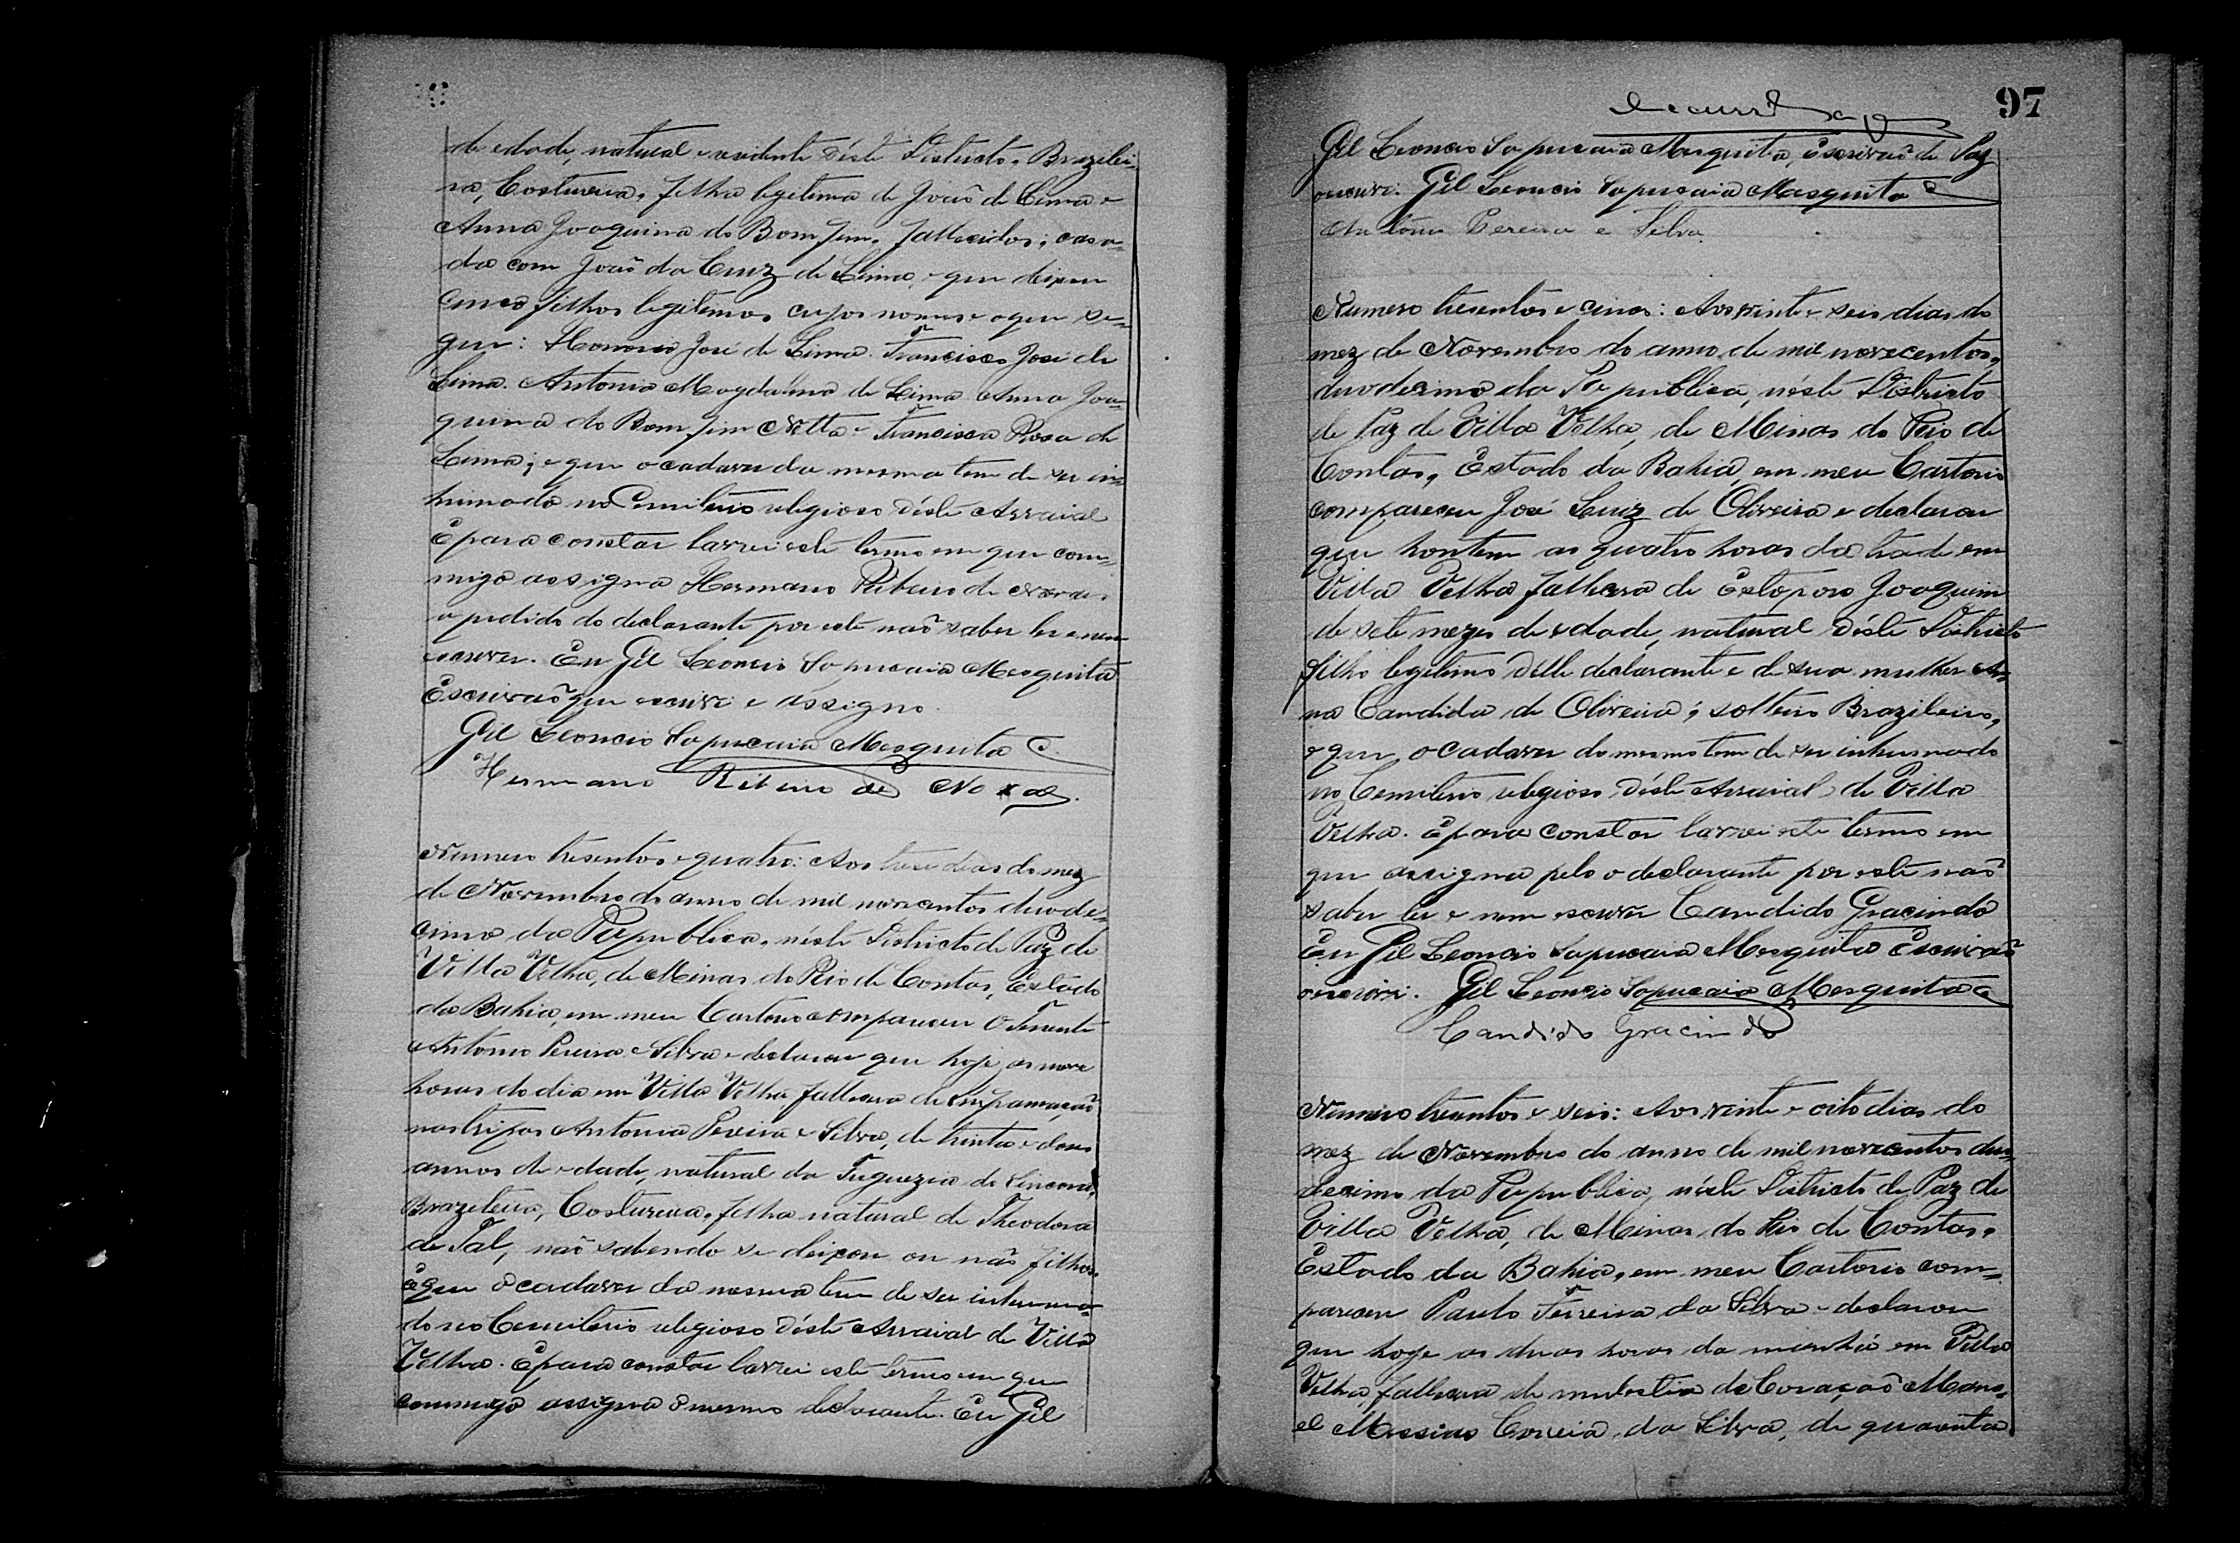 de edade, natural e residente déste Districto, Brazilei-
ra, Costureira, filha legitima de João de Lima e
Anna Joaquina do Bomfim, fallecidos; casa-
da com João da Cruz de Lima, e que deixou
cinco filhos legitimos cujos nomes e o que se-
gue: Honorio José de Lima. Francisco José de
Lima. Antonia Magdalena de Lima. Anna Joa-
quina do Bomfim Netta e Francisca Rosa de
Lima; e que o cadaver da mesma tem de ser in-
humado no Cemiterio religioso déste Arraial
E para constar lavrei este termo em que com-
migo assigna Hermano Ribeiro de Novaes
a pedido do declarante por este não saber ler e nem
escrever. Eu Gil Leoncio Sapucaia Mesquita
Escrivão que escrevi e assigno.
Gil Leoncio Sapucaia Mesquita
Hermano Ribeiro de Novaes.
Numero tresentos e quatro: Aos treze dias do mez
de Novembro do anno de mil novecentos duode-
cimo da Republica, néste Districto de Paz de
Villa Velha, de Minas do Rio de Contas, Estado
da Bahia, em meu Cartorio compareceu O Tenente
Antonio Pereira e Silva e declarou que hoje as nove
horas do dia em Villa Velha fallecera de inflamação
nas tripas Antonia Pereira e Silva, de trinta e dous
annos de edade, natural da Freguezia do Sincorá,
Brazileira, Costureira, filha natural de Theodora
de Tal, não sabendo se deixou ou não filhos.
e que o cadaver da mesma tem de ser inhuma-
do no Cemiterio religioso déste Arraial de Villa
Velha. E para constar lavrei este termo em que
commigo assigna o mesmo declarante. Eu Gil
97
Gil Leoncio Sapucaia Mesquita, Escrivão de Paz
o escrevi. Gil Leoncio Sapucaia Mesquita
Antonio Pereira e Silva.
Numero tresentos e cinco: Aos vinte e seis dias do
mez de Novembro do anno de mil novecentos,
duodecimo da Republica, néste Districto
de Paz de Villa Velha, de Minas do Rio de
Contas, Estado da Bahia, em meu Cartorio
compareceu José Luiz de Oliveira e declarou
que hontem as quatro horas da tarde em
Villa Velha fallecera de Estoporo Joaquim
de sete mezes de edade, natural déste Districto
filho legitimo delle declarante e de sua mulher An-
na Candida de Oliveira, solteiro Brazileiro,
e que o cadaver do mesmo tem de ser inhumado
no Cemiterio religioso déste Arraial de Villa
Velha. E para constar lavrei este termo em
que assigna pelo o declarante por este não
saber ler e nem escrever Candido Gracindo
Eu Gil Leoncio Sapucaia Mesquita Escrivão
o escrevi. Gil Leoncio Sapucaia Mesquita
Candido Gracindo
Numero tresentos e seis: Aos vinte e oito dias do
mez de Novembro do anno de mil novecentos duo-
decimo da Republica, néste Districto de Paz de
Villa Velha, de Minas do Rio de Contas,
Estado da Bahia, em meu Cartorio com-
pareceu Paulo Ferreira da Silva e declarou
que hoje as duas horas da manhã em Villa
Velha, fallecera de molestia do Coração Mano-
el Messias Correia da Silva, de quarenta